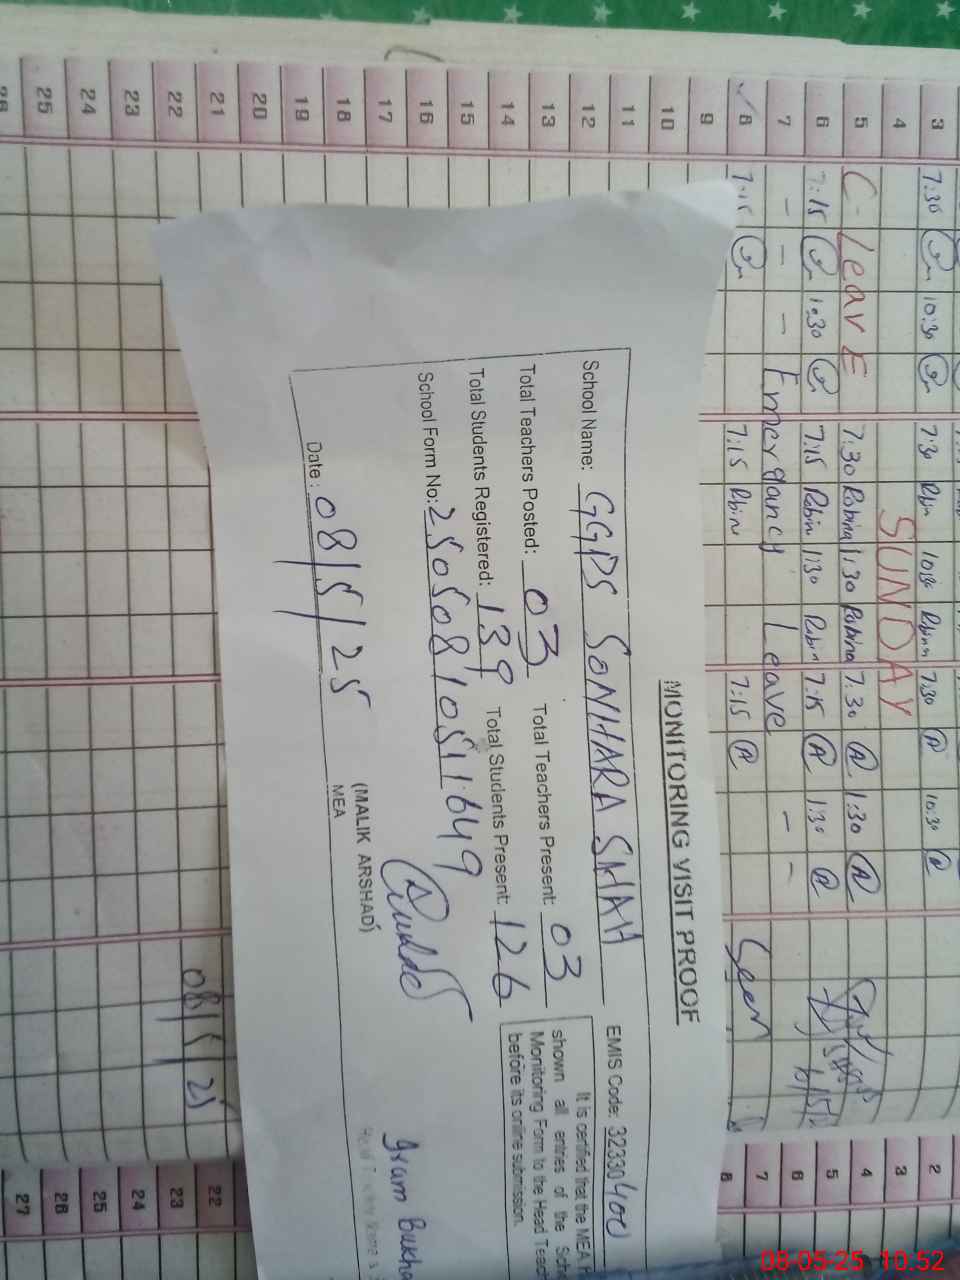 MONITORING VISIT PROOF
School Name: GGPS SONHARA SHAH EMIS Code: 3233040
Total Teachers Posted: 03 Total Teachers Present: 03
Total Students Registered: 139 Total Students Present: 126
School Form No: 25050810511649
It is certified that the MEA
shown all entries of the
Monitoring Form to the Head
before its online submission.
Date: 08/5/25
(MALIK ARSHAD)
MEA
Iram
3 7:30 10:30 7:30 7:30 10:30
4 SUNDAY
5 C-LeavE 7:30 Robina 1:30 Robina 7:30 A 1:30 A
6 7:15 1:30 7:15 Robin 1:30 Robin 7:15 A 1:30 A
7 - - - Emergancy Leave - -
8 7:15 7:15 Robin 7:15 A Seen
9
10
11
12
13
14
15
16
17
18
19
20
21
22
23
24
25
26
08/5/25
2
3
4
5
6
7
8
22
23
24
25
26
27
08-05-25 10:52